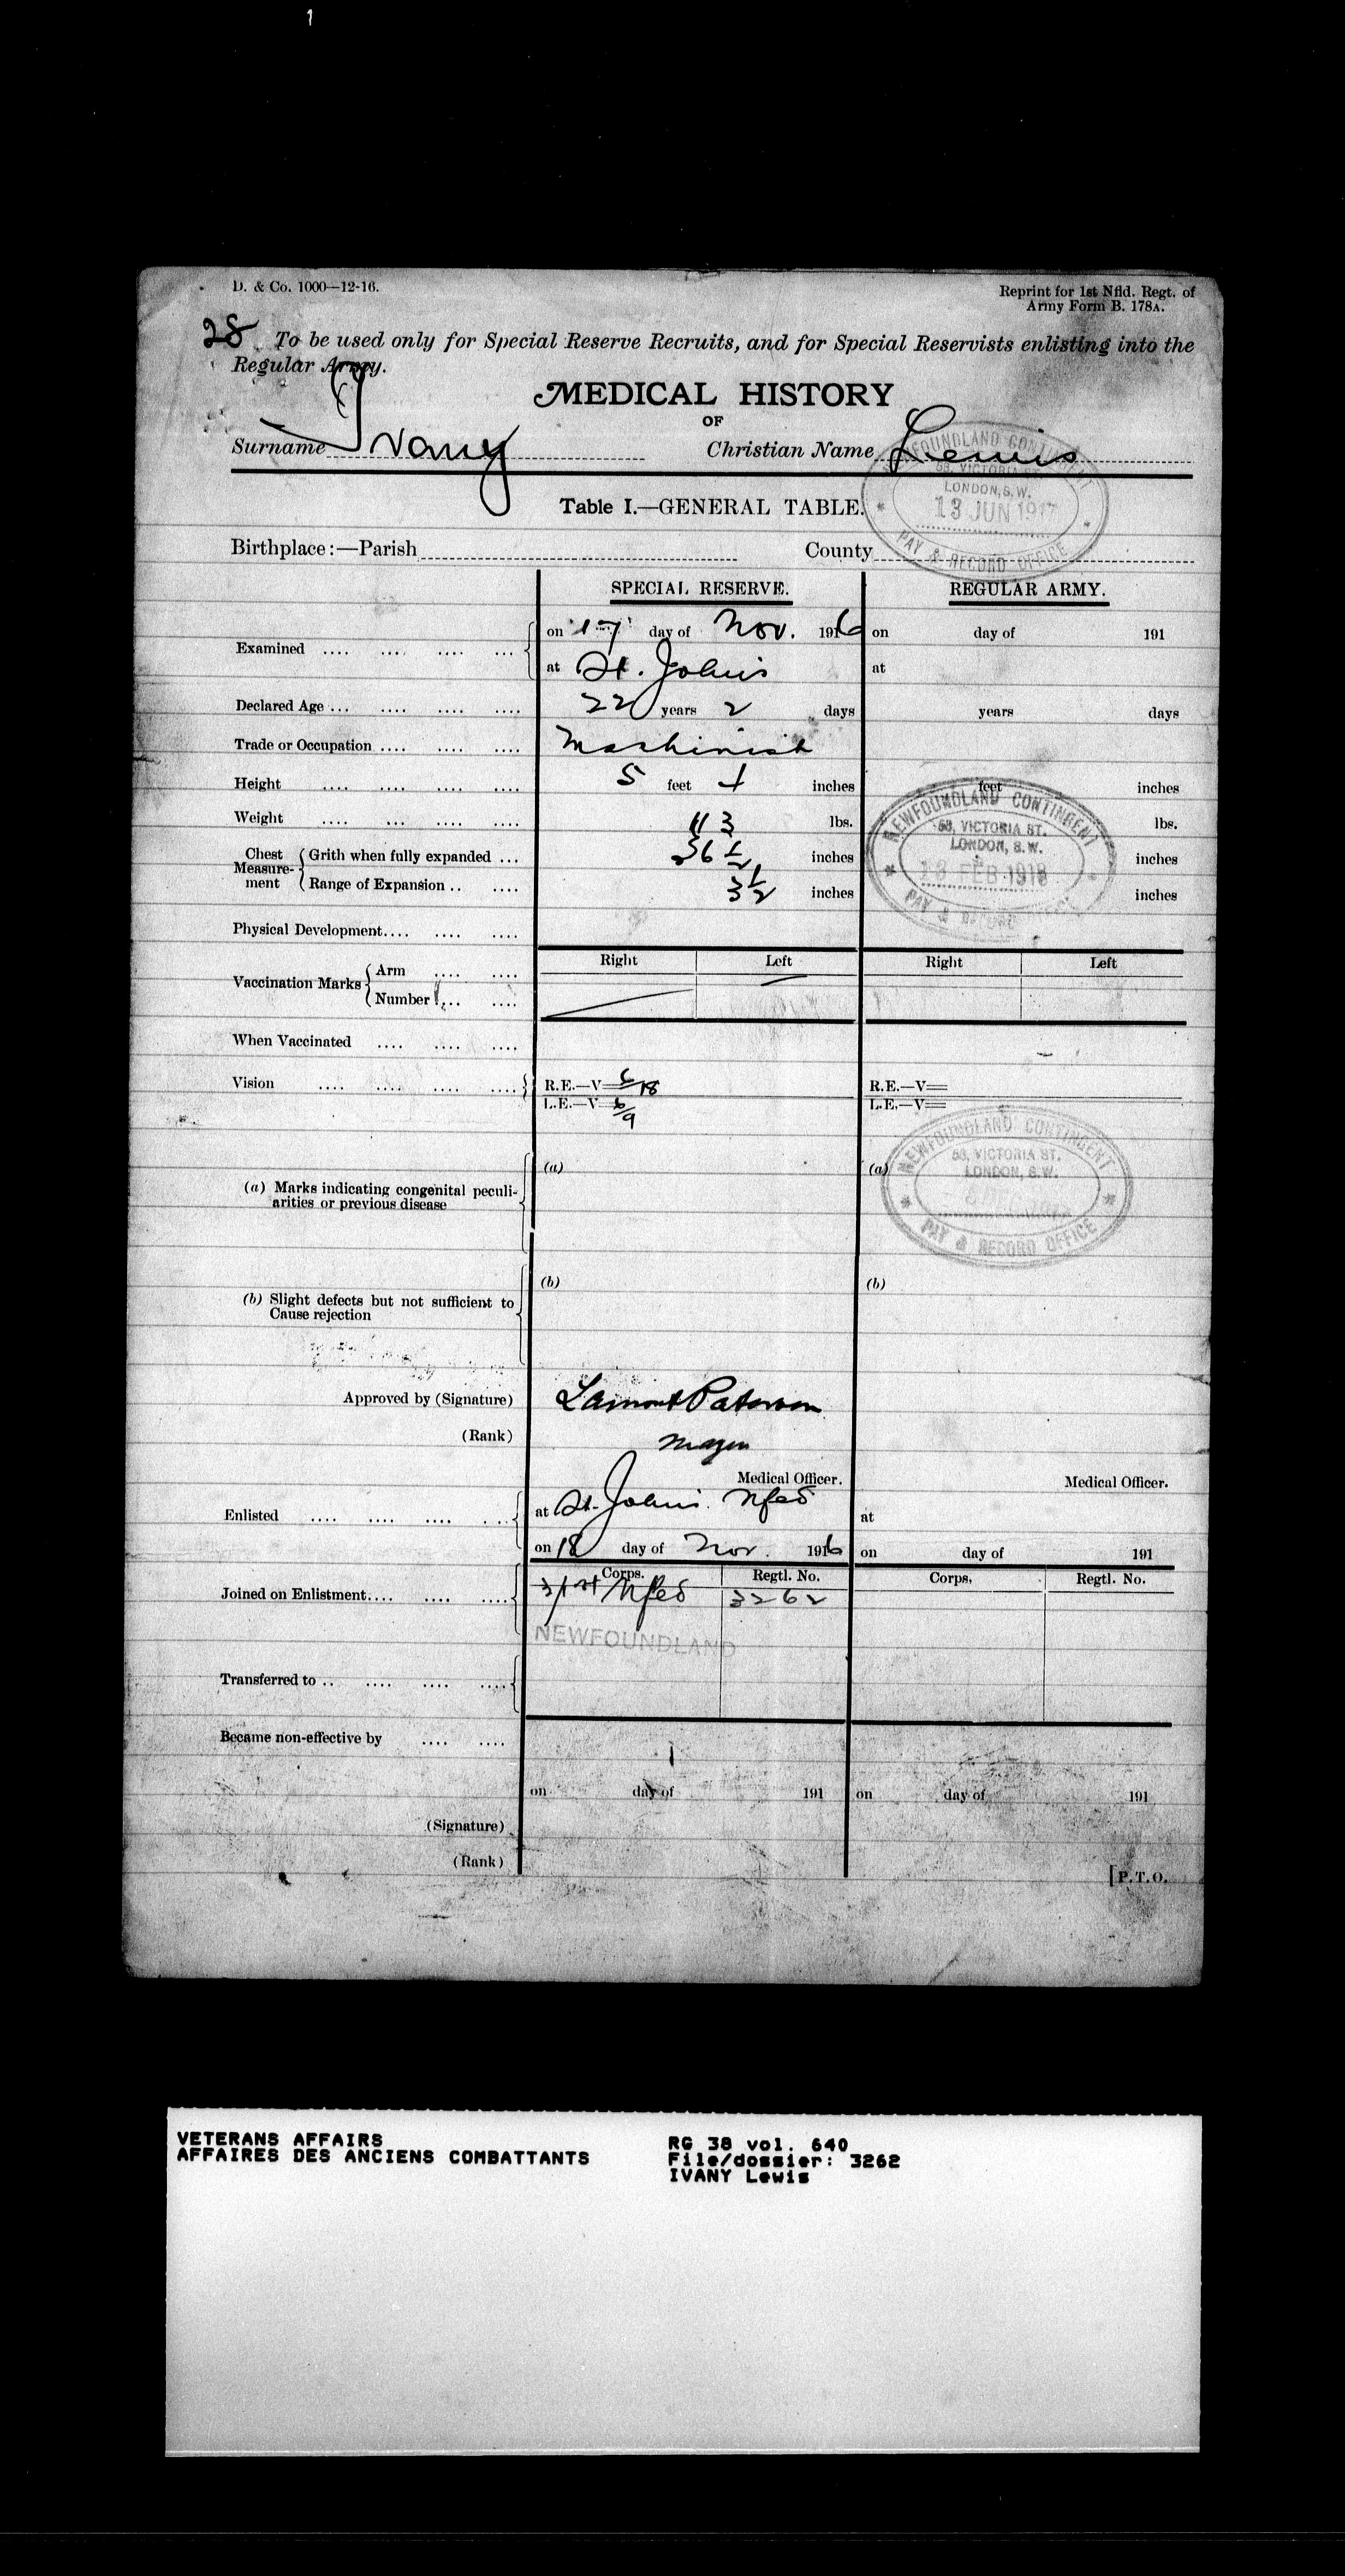 1
D. & Co. 1000—12-16.
Reprint for 1st Nfld. Regt. of
Army Form B. 178A.
28 To be used only for Special Reserve Recruits, and for Special Reservists enlisting into the
Regular Army.
MEDICAL HISTORY
OF
Surname Ivany Christian Name Lewis
NEWFOUNDLAND CONTINGENT
58, VICTORIA ST.
LONDON, S.W.
13 JUN 1917
PAY & RECORD OFFICE
Table I.—GENERAL TABLE.
Birthplace:—Parish County
SPECIAL RESERVE. REGULAR ARMY.
Examined .... .... .... ... on 17 day of Nov. 1916 on day of 191
at St. John's at
Declared Age ... .... .... .... 22 years 2 days years days
Trade or Occupation .... .... .... Machinist
Height .... .... .... .... 5 feet 4 inches feet inches
Weight .... ... .... .... 113 lbs. lbs.
Chest Measurement Grith when fully expanded ... 36 1/2 inches inches
Range of Expansion .. .... 3 1/2 inches inches
NEWFOUNDLAND CONTINGENT
58, VICTORIA ST.
LONDON, S.W.
FEB 1918
PAY & RECORD OFFICE
Physical Development.... .... ....
Right Left Right Left
Vaccination Marks Arm .... ....
Number .... ....
When Vaccinated .... .... ....
Vision .... .... .... .... R.E.—V= 6/18 R.E.—V=
L.E.—V= 6/9 L.E.—V=
NEWFOUNDLAND CONTINGENT
58, VICTORIA ST.
LONDON, S.W.
PAY & RECORD OFFICE
(a) (a)
(a) Marks indicating congenital peculi-
arities or previous disease
(b) (b)
(b) Slight defects but not sufficient to
Cause rejection
Approved by (Signature) Lamont Paterson
(Rank) Major
Medical Officer. Medical Officer.
Enlisted .... .... .... .... at St. John's Nfld at
on 18 day of Nov. 1916 on day of 191
Corps. Regtl. No. Corps. Regtl. No.
Joined on Enlistment.... .... .... 3/1st Nfld 3262
NEWFOUNDLAND
Transferred to .. .... .... ....
Became non-effective by .... ....
on day of 191 on day of 191
(Signature)
(Rank)
[P.T.O.
VETERANS AFFAIRS
AFFAIRES DES ANCIENS COMBATTANTS
RG 38 vol. 640
File/dossier: 3262
IVANY Lewis